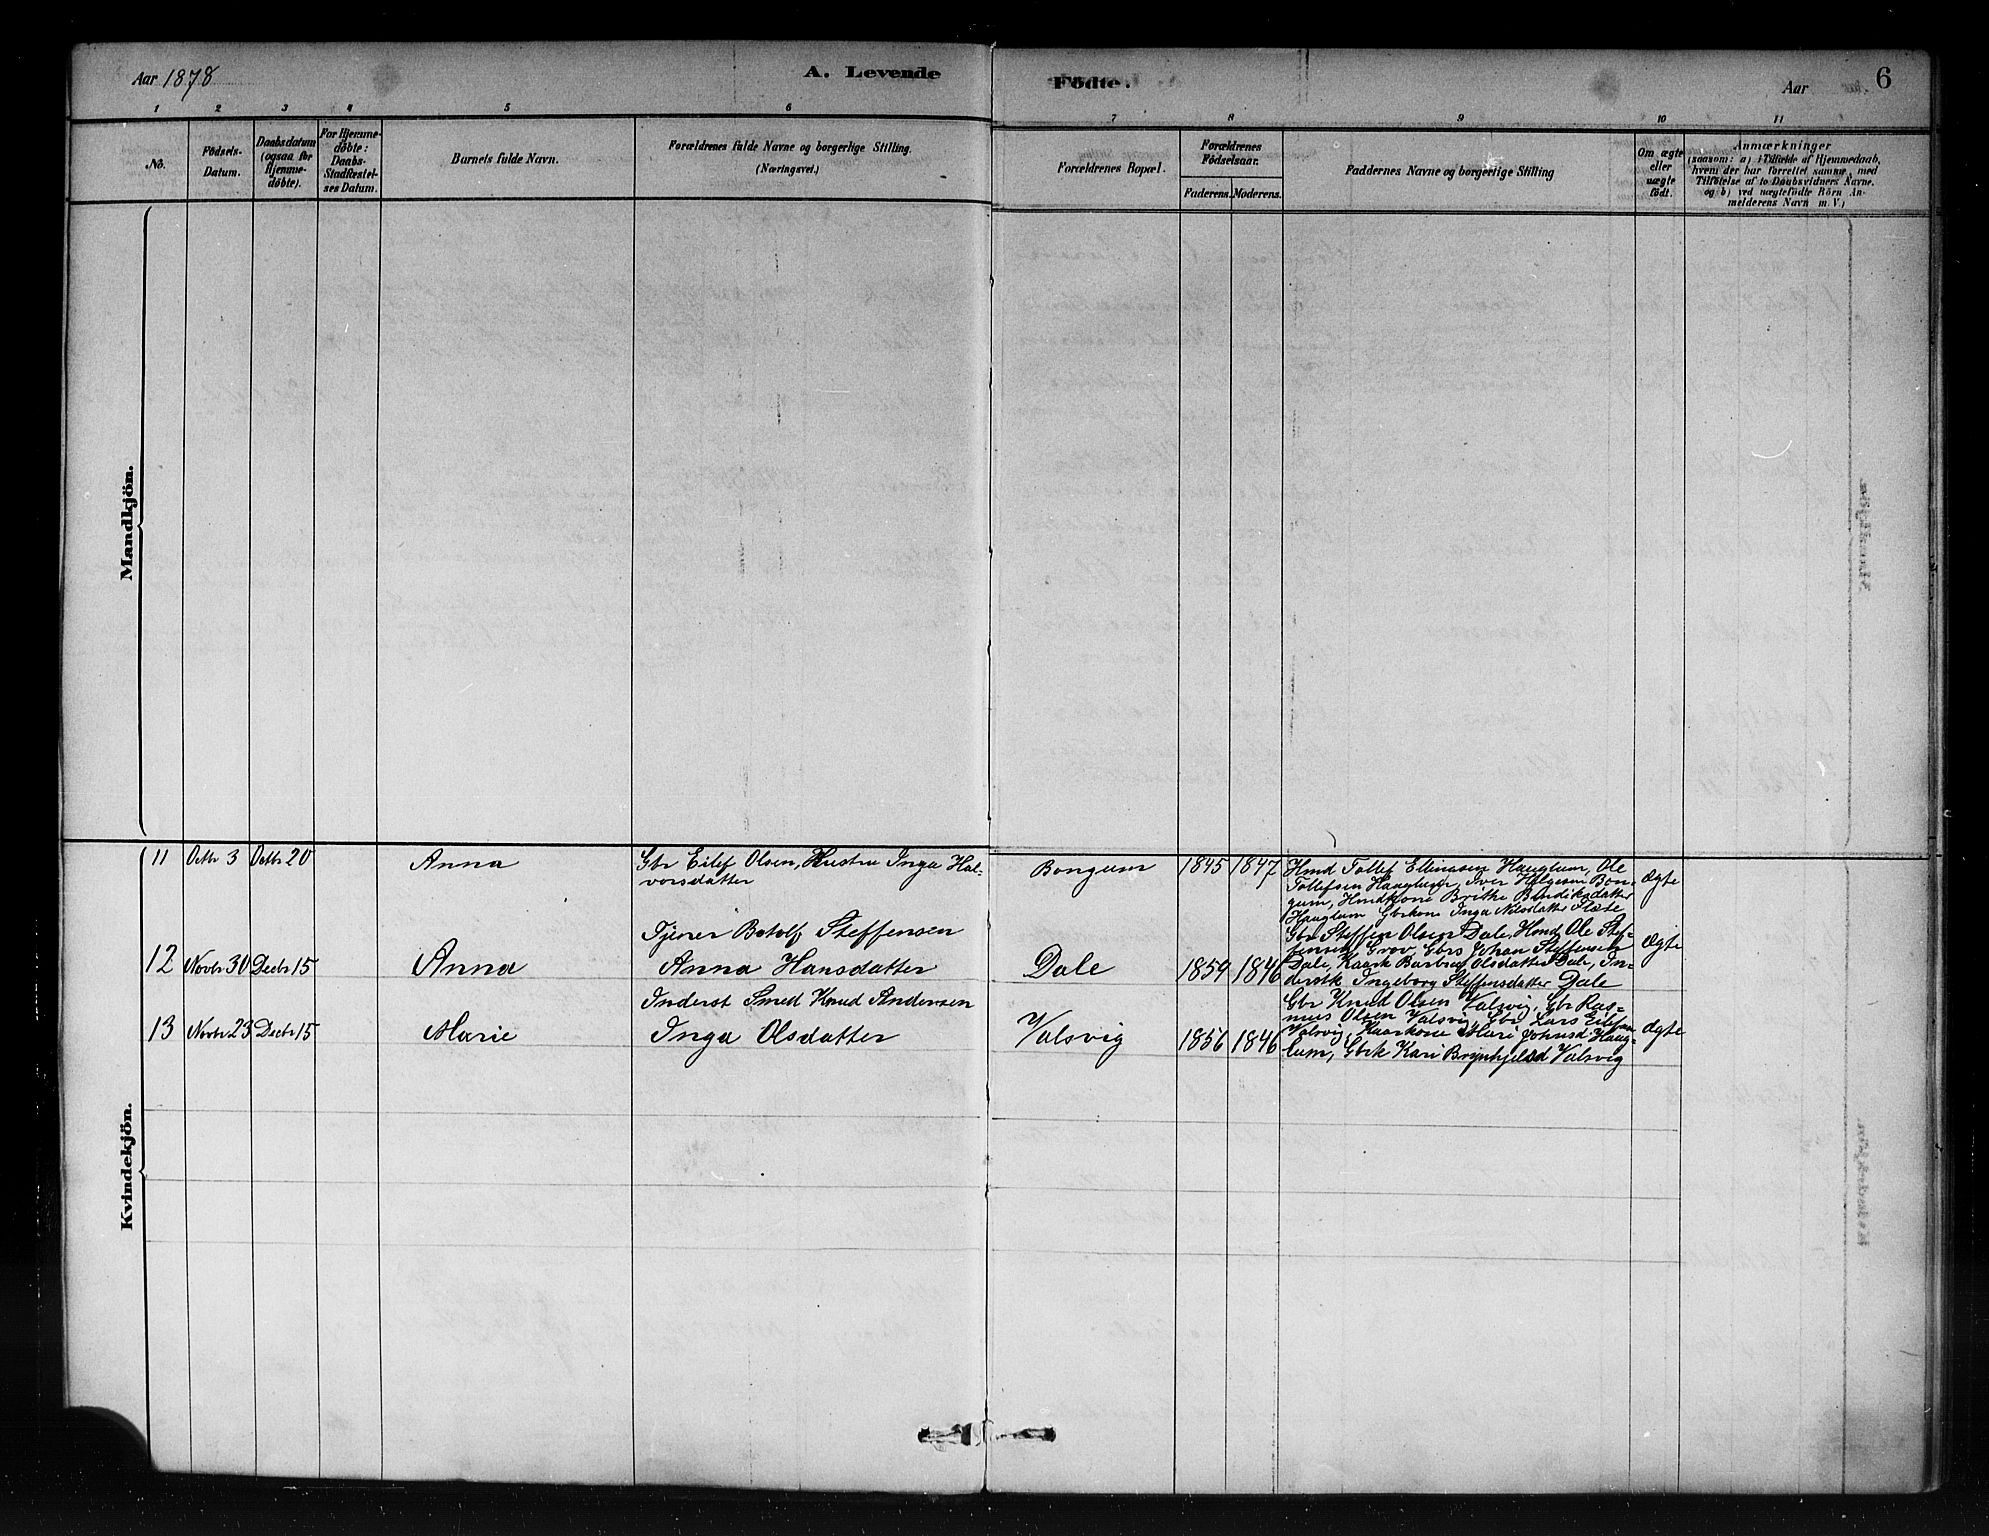 Aar 1878
A. Levende
Födte.
Aar
6
1 2 3 4 5 6 7 8 9 10 11
No.
Födsels-
Datum.
Daabsdatum
(ogsaa for
Hjemme-
döbte).
For Hjemme-
döbte:
Daabs-
Stadfæstel-
ses Datum.
Barnets fulde Navn.
Forældrenes fulde Navne og borgerlige Stilling.
(Næringsvei.)
Forældrenes Bopæl.
Forældrenes
Födselsaar.
Faderens. Moderens.
Faddernes Navne og borgerlige Stilling
Om ægte
eller
uægte
födt.
Anmærkninger
(saasom: a) i Tilfælde af Hjemmedaab,
hvem der har forrettet samme, med
Tilföielse af to Daabsvidners Navne.
og b) ved uægtefödte Börn An-
melderens Navn m. V.)
Mandkjön.
Kvindekjön.
11 Octbr 3 Octbr 20 Anna
Gbr Eilef Olsen, Hustru Inga Hal-
vorsdatter
Bongum 1845 1847
Hmd Tollef Ellingsen Hauglum, Ole
Tollefsen Hauglum, Iver Helgesen Bon-
gum, Hmdkone Brithe Bendiksdatter
Hauglum Gbrkone Inga Nilsdatter Flate
Ægte
12 Novbr 30 Decbr 15 Anna
Tjener Botolf Steffensen
Anna Hansdatter
Dale 1859 1846
Gbr Steffen Olsen Dale, Hmd Ole Stef-
fensen Grov, Gbrs Johan Steffensen
Dale, Kaark Barbra Olsdatter Dale, In-
derstk Ingeborg Steffensdatter Dale
Ægte
13 Novbr 23 Decbr 15 Marie
Inderst Smed Knud Andersen
Inga Olsdatter
Valsvig 1856 1846
Gbr Knud Olsen Valsvig, Gbr Ras-
mus Olsen Valsvig, Gbr Lars Eilefsen
Valsvig, Kaarkone Mari Johnsd Haug-
lum, Gbrk Kari Brynhjelsd Valsvig
Ægte